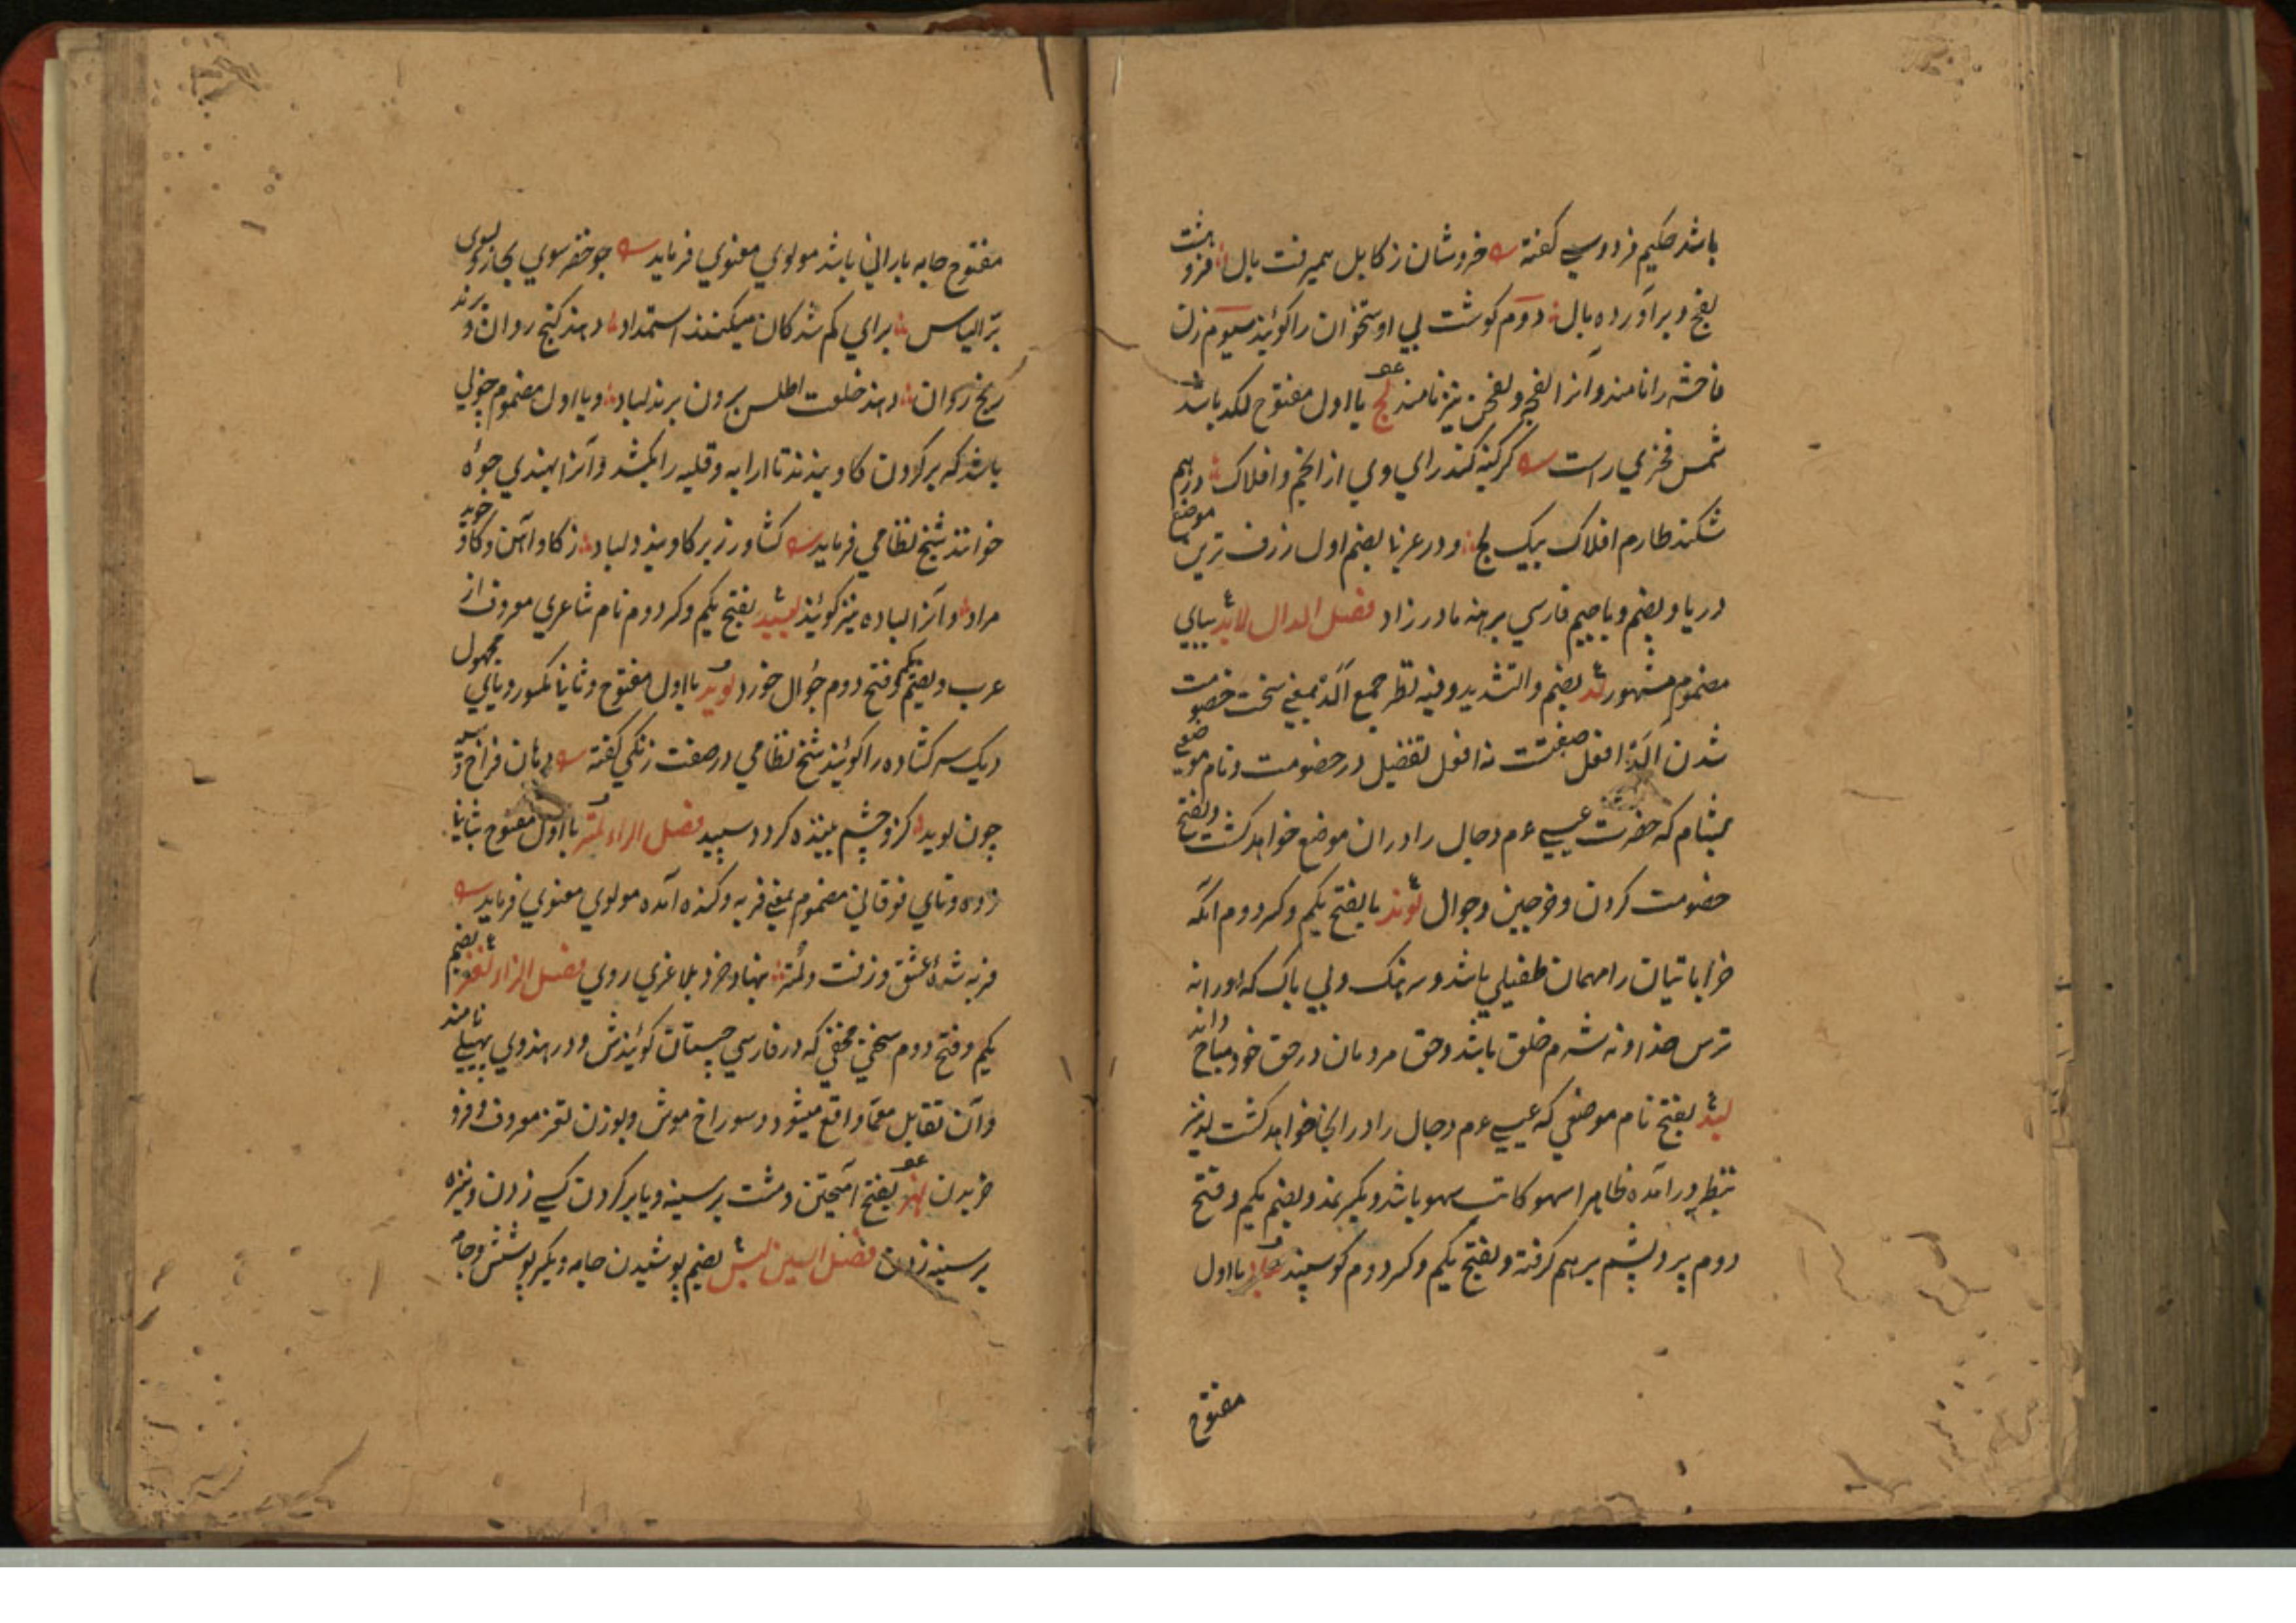 باشد حکیم فردوسی گفته خروشان ز کابل همیرفت بال فروهشت
لفج و برآورده یال دوم گوشت بی اوستخوان را گویند سیوم زن
فاحشه را نامند و آنرا لفچه و لفچن نیز نامند لج با اول مفتوح لکد باشد
شمس فخری راست گر کینه کند رای وی از انجم و افلاک درهم
شکند طارم افلاک بیک لج و در عربی بضم اول ژرف ترین موضع
دریا و بضم و با جیم فارسی برهنه مادرزاد فصل الدال لابد ببای
مضموم مشهور لد بضم و التشدید وفیه نظر جمع الد بمعنی سخت خصومت
شدن الد افعل صفتست نه افعل تفضیل در خصومت و نام موضعی
بشام که حضرت عیسی ع م دجال را در ان موضع خواهد کشت و بفتح
خصومت کردن و خرجین و جوال لوند با بفتح یکم و کسر دوم آنکه
خراباتیان را مهمان طفیلی باشد و سرهنک و بی باک که اورا نه
ترس خدا و نه شرم خلق باشد و حق مردمان در حق خود مباح داند
لبد بفتح نام موضعی که عیسی ع م دجال را در انجا خواهد کشت لد نیز
بنظر درآمده ظاهرا سهو کاتب سهو باشد و دیگر نمد و بضم یکم و فتح
دوم پر و پشم برهم گرفته و بفتح یکم و کسر دوم گوسپند لباد با اول
مفتوح
مفتوح جامه بارانی باشد مولوی معنوی فرماید چو خضر سوی بحار و بسوی
بر الیاس برای گم شدگان میکنند استمداد دهند گنج روان و برند
رنج روان دهند خلعت اطلس برون برند لباد و با اول مضموم چوبی
باشد که بر گردون گاو نهند تا ارابه و قلبه را بکشد و آنرا بهندی جوه
خوانند شیخ نظامی فرماید کشاورز بر گاو بندد لباد ز گاو آهن و گاو جوید
مراد و آنرا لباده نیز گویند لبید بفتح یکم و کسر دوم نام شاعری معروف از
عرب و بضم یکم و فتح دوم جوال خورد لوید با اول مفتوح و ثانی مکسور و یای مجهول
دیک سر کشاده را گویند شیخ نظامی در صفت زنکی گفته دهان فراخ و سیه
چون لوید کزو چشم بیننده گردد سپید فصل الراء لمتر با اول مفتوح بثانی
زده و تای فوقانی مضموم بمعنی فربه و گنده آمده مولوی معنوی فرماید
فربه شده عشق و زفت و لمتر بنهاد خرد بلاغری روی فصل الزاء لغز بضم
یکم و فتح دوم سخن مخفی که در فارسی چیستان گویندش و در هندوی پهیلی نامند
و آن تقابل معما واقع میشود و سوراخ موش و بوزن لقز معروف و فرو
خریدن لهز بفتح آمیختن و مشت بر سینه و یا بر گردن کسی زدن و نیزه
بر سینه زدن فصل السین لبس بضم پوشیدن جامه و دیگر پوشش و جامه